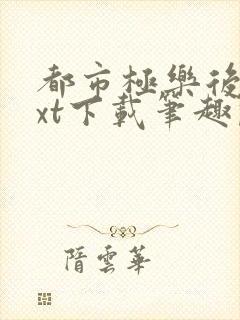 都市極樂後
xt下載筆趣
隋雲華